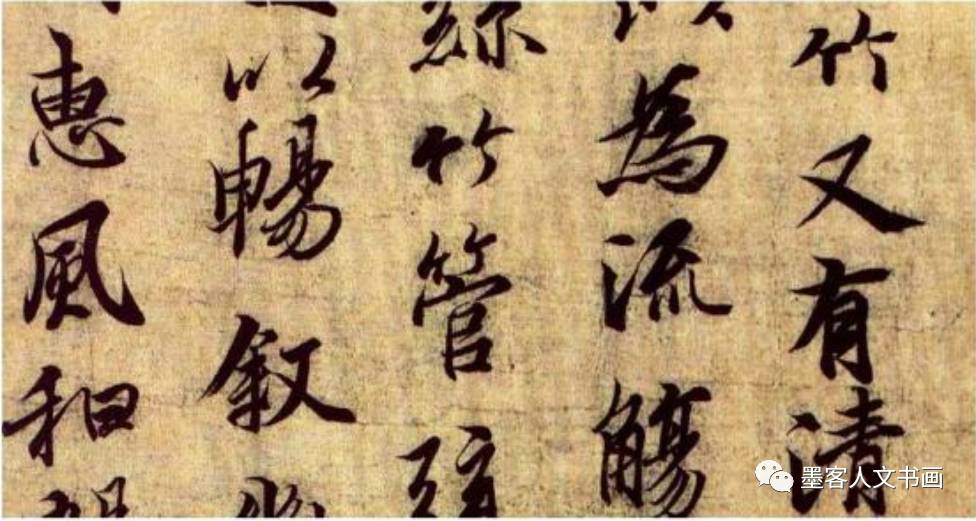 竹又有清
以為流觴
絲竹管弦
以暢叙幽
惠風和暢
墨客人文书画